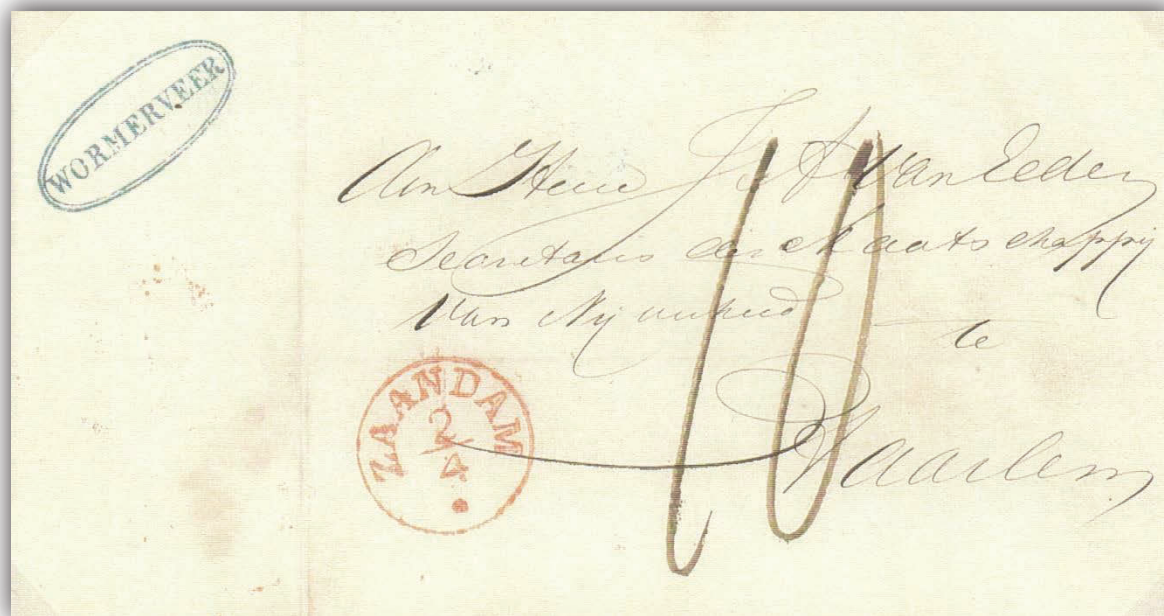 WORMERVEER
Aan Heer F W van Eeden
Secretaris der Maatschappij
van Nijverheid
te
Haarlem
ZAANDAM
2/4
10